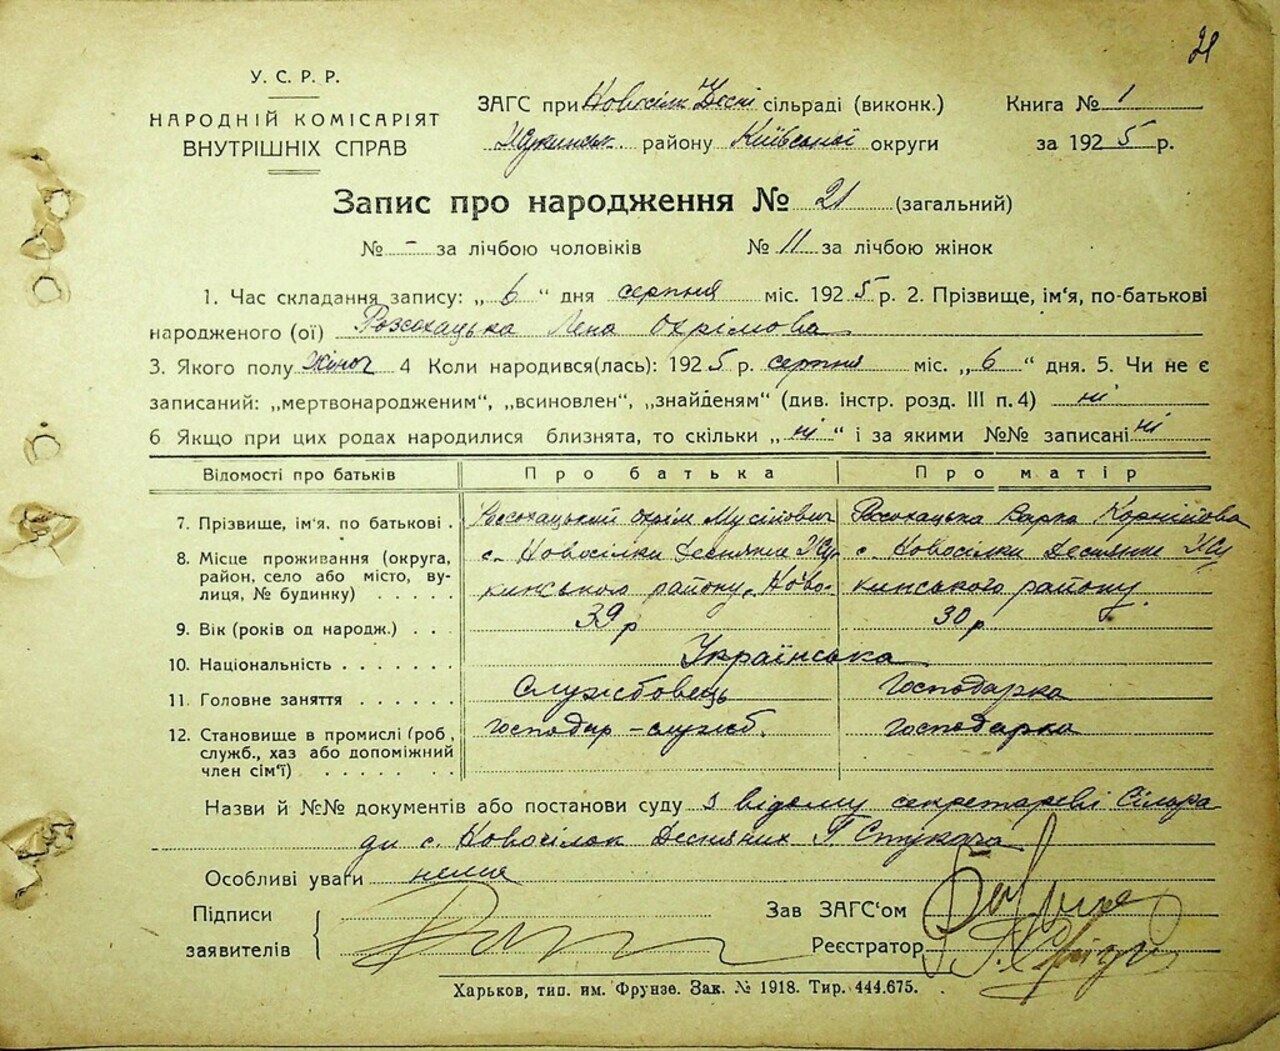 21
У. С. Р. Р.
НАРОДНІЙ КОМІСАРІЯТ
ВНУТРІШНІХ СПРАВ
ЗАГС при Новосілк Десні сільраді (виконк.)
району Київської округи
Книга № 1
за 1925 р.
Запис про народження № 21 (загальний)
№ - за лічбою чоловіків № 11 за лічбою жінок
1. Час складання запису: „ 6 “ дня серпня міс. 1925 р. 2. Прізвище, ім'я, по-батькові
народженого (ої) Розсохацька Лена Охрімова
3. Якого полу жіноч 4 Коли народився(лась): 1925 р. серпня міс. „ 6 “ дня. 5. Чи не є
записаний: „мертвонародженим“, „всиновлен“, „знайденям“ (див. інстр. розд. III п. 4) ні
6 Якщо при цих родах народилися близнята, то скільки „ ні “ і за якими №№ записані ні
Відомості про батьків Про батька Про матір
7. Прізвище, ім'я, по батькові . Россохацький Охрім Мусійович Россохацька Варка Корнійова
8. Місце проживання (округа, с. Новосілки Деснянские с. Новосілки Деснянкі
район, село або місто, ву-
лиця, № будинку) . . . . . кинського району, Ново- кинського району
9. Вік (років од народж.) . . . 39 р 30 р
10. Національність . . . . . . . Українська
11. Головне заняття . . . . . . Службовець Господарка
12. Становище в промислі (роб, господар - служб. господарка
служб., хаз або допоміжний
член сім'ї) . . . . . . .
Назви й №№ документів або постанови суду з відому секретареві Сільра
ди с. Новосілок Десняних Г. Стукача
Особливі уваги нема
Підписи
заявителів
Зав ЗАГС'ом
Реєстратор
Харьков, тип. им. Фрунзе. Зак. № 1918. Тир. 444.675.